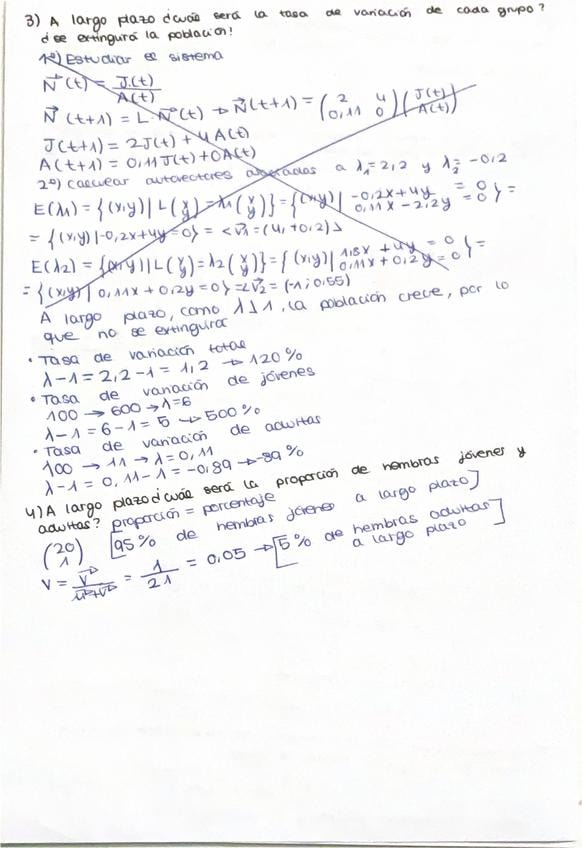 3) A largo plazo ¿cuál será la tasa de variación de cada grupo?
¿se extinguirá la población?
1º) Estudiar el sistema
N⃗(t) = J(t)/A(t)
N⃗(t+1) = L·N⃗(t) → N⃗(t+1) = (2 4 / 0,11 0)(J(t) / A(t))
J(t+1) = 2J(t) + 4A(t)
A(t+1) = 0,11J(t) + 0A(t)
2º) calcular autovectores asociados a λ₁=2,2 y λ₂=-0,2
E(λ1) = {(x,y) | L(x/y) = λ1(x/y)} = {(x,y) | -0,2x+4y = 0 / 0,11x - 2,2y = 0} =
= {(x,y) | -0,2x+4y=0} = <v⃗1 = (4, +0,2)>
E(λ2) = {(x,y) | L(x/y) = λ2(x/y)} = {(x,y) | 1,8x + 4y = 0 / 0,11x + 0,2y = 0} =
= {(x,y) | 0,11x + 0,2y = 0} = <v⃗2 = (-1; 0,55)
A largo plazo, como λ>1, la población crece, por lo
que no se extinguirá
• Tasa de variación total
λ-1 = 2,2-1 = 1,2 → 120%
• Tasa de variación de jóvenes
100 → 600 → λ=6
λ-1 = 6-1 = 5 → 500%
• Tasa de variación de adultas
100 → 11 → λ=0,11
λ-1 = 0,11-1 = -0,89 → -89%
4) A largo plazo ¿cuál será la proporción de hembras jóvenes y
adultas? proporción = porcentaje
(20 / 1) [95% de hembras jóvenes a largo plazo]
V = v⃗/(u⃗+v⃗) = 1/21 = 0,05 → [5% de hembras adultas
a largo plazo]